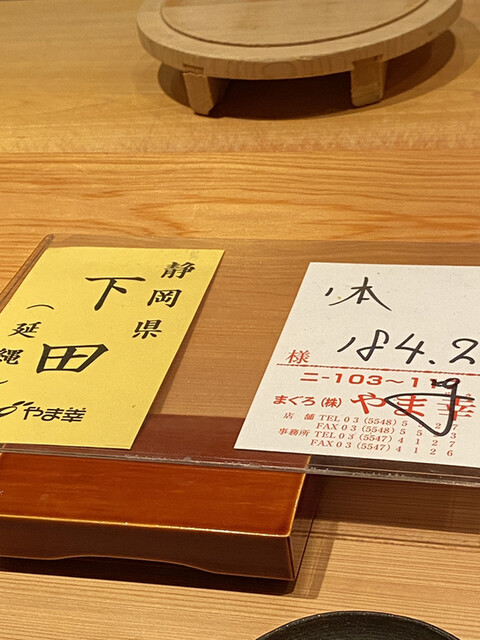 静岡県
下田
(延縄)
やま幸
様
184.2
ニ-103~119
まぐろ(株) やま幸
店舗 TEL 03(5548)5
FAX 03(5548)5
事務所 TEL 03(5547)4127
FAX 03(5547)4126